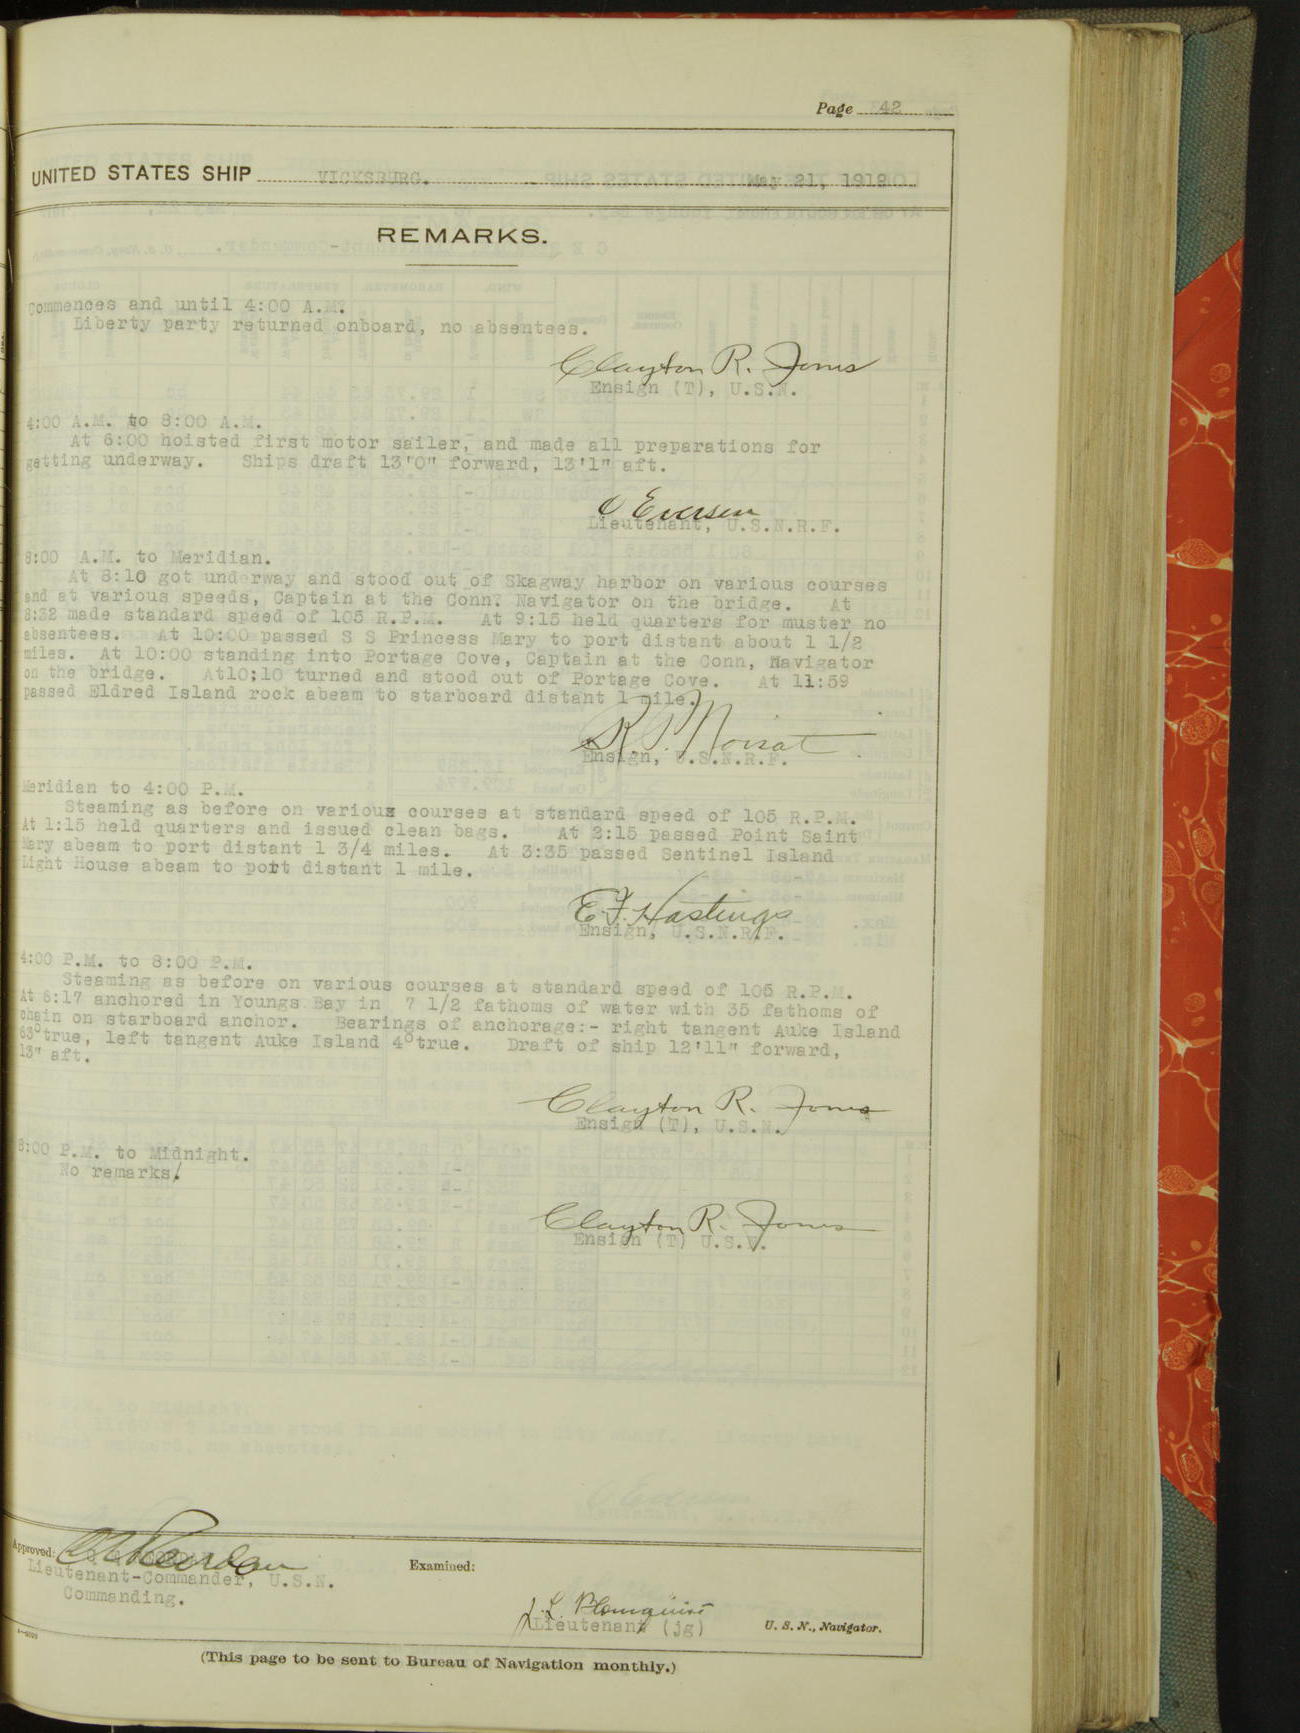 Page 42
UNITED STATES SHIP VICKSBURG. May 21, 1919
REMARKS.
Commences and until 4:00 A.M.
Liberty party returned onboard, no absentees.
Clayton R. Jones
Ensign (T), U.S.N.
4:00 A.M. to 8:00 A.M.
At 6:00 hoisted first motor sailer, and made all preparations for
getting underway. Ships draft 13'0" forward, 13'1" aft.
O Eversen
Lieutenant, U.S.N.R.F.
8:00 A.M. to Meridian.
At 8:10 got underway and stood out of Skagway harbor on various courses
and at various speeds, Captain at the Conn. Navigator on the bridge. At
8:32 made standard speed of 105 R.P.M. At 9:15 held quarters for muster no
absentees. At 10:00 passed S S Princess Mary to port distant about 1 1/2
miles. At 10:00 standing into Portage Cove, Captain at the Conn, Navigator
on the bridge. At10;10 turned and stood out of Portage Cove. At 11:59
passed Eldred Island rock abeam to starboard distant 1 mile.
Ensign, U.S.N.R.F.
Meridian to 4:00 P.M.
Steaming as before on various courses at standard speed of 105 R.P.M.
At 1:15 held quarters and issued clean bags. At 2:15 passed Point Saint
Mary abeam to port distant 1 3/4 miles. At 3:35 passed Sentinel Island
Light House abeam to port distant 1 mile.
E.F. Hastings
Ensign, U.S.N.R.F.
4:00 P.M. to 8:00 P.M.
Steaming as before on various courses at standard speed of 105 R.P.M.
At 6:17 anchored in Youngs Bay in 7 1/2 fathoms of water with 35 fathoms of
chain on starboard anchor. Bearings of anchorage:- right tangent Auke Island
63°true, left tangent Auke Island 4°true. Draft of ship 12'11" forward,
13" aft.
Clayton R. Jones
Ensign (T), U.S.N.
8:00 P.M. to Midnight.
No remarks.
Clayton R. Jones
Ensign (T) U.S.N.
Approved:
Lieutenant-Commander, U.S.N.
Commanding.
Examined:
J. L. Blomquist
Lieutenant (jg) U. S. N., Navigator.
(This page to be sent to Bureau of Navigation monthly.)